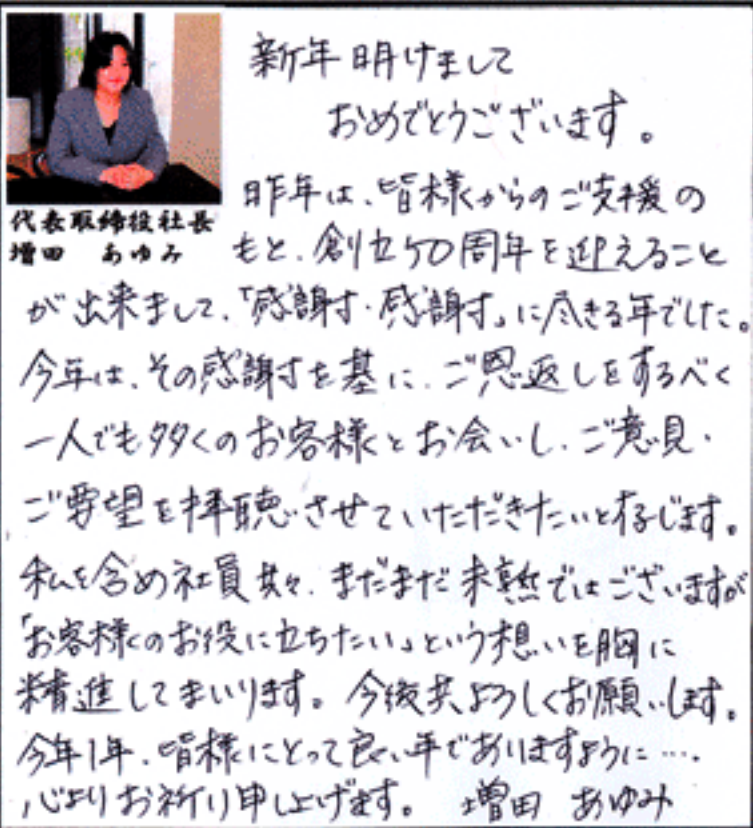 新年明けまして
おめでとうございます。
代表取締役社長
増田 あゆみ
昨年は、皆様からのご支援の
もと、創立50周年を迎えること
が出来まして、「感謝・感謝」に尽きる年でした。
今年は、その感謝を基に、ご恩返しをするべく
一人でも多くのお客様とお会いし、ご意見・
ご要望を拝聴させていただきたいと存じます。
私を含め社員共々、まだまだ未熟ではございますが
「お客様のお役に立ちたい」という想いを胸に
精進してまいります。今後共よろしくお願いします。
今年1年、皆様にとって良い年でありますように…。
心よりお祈り申し上げます。 増田 あゆみ